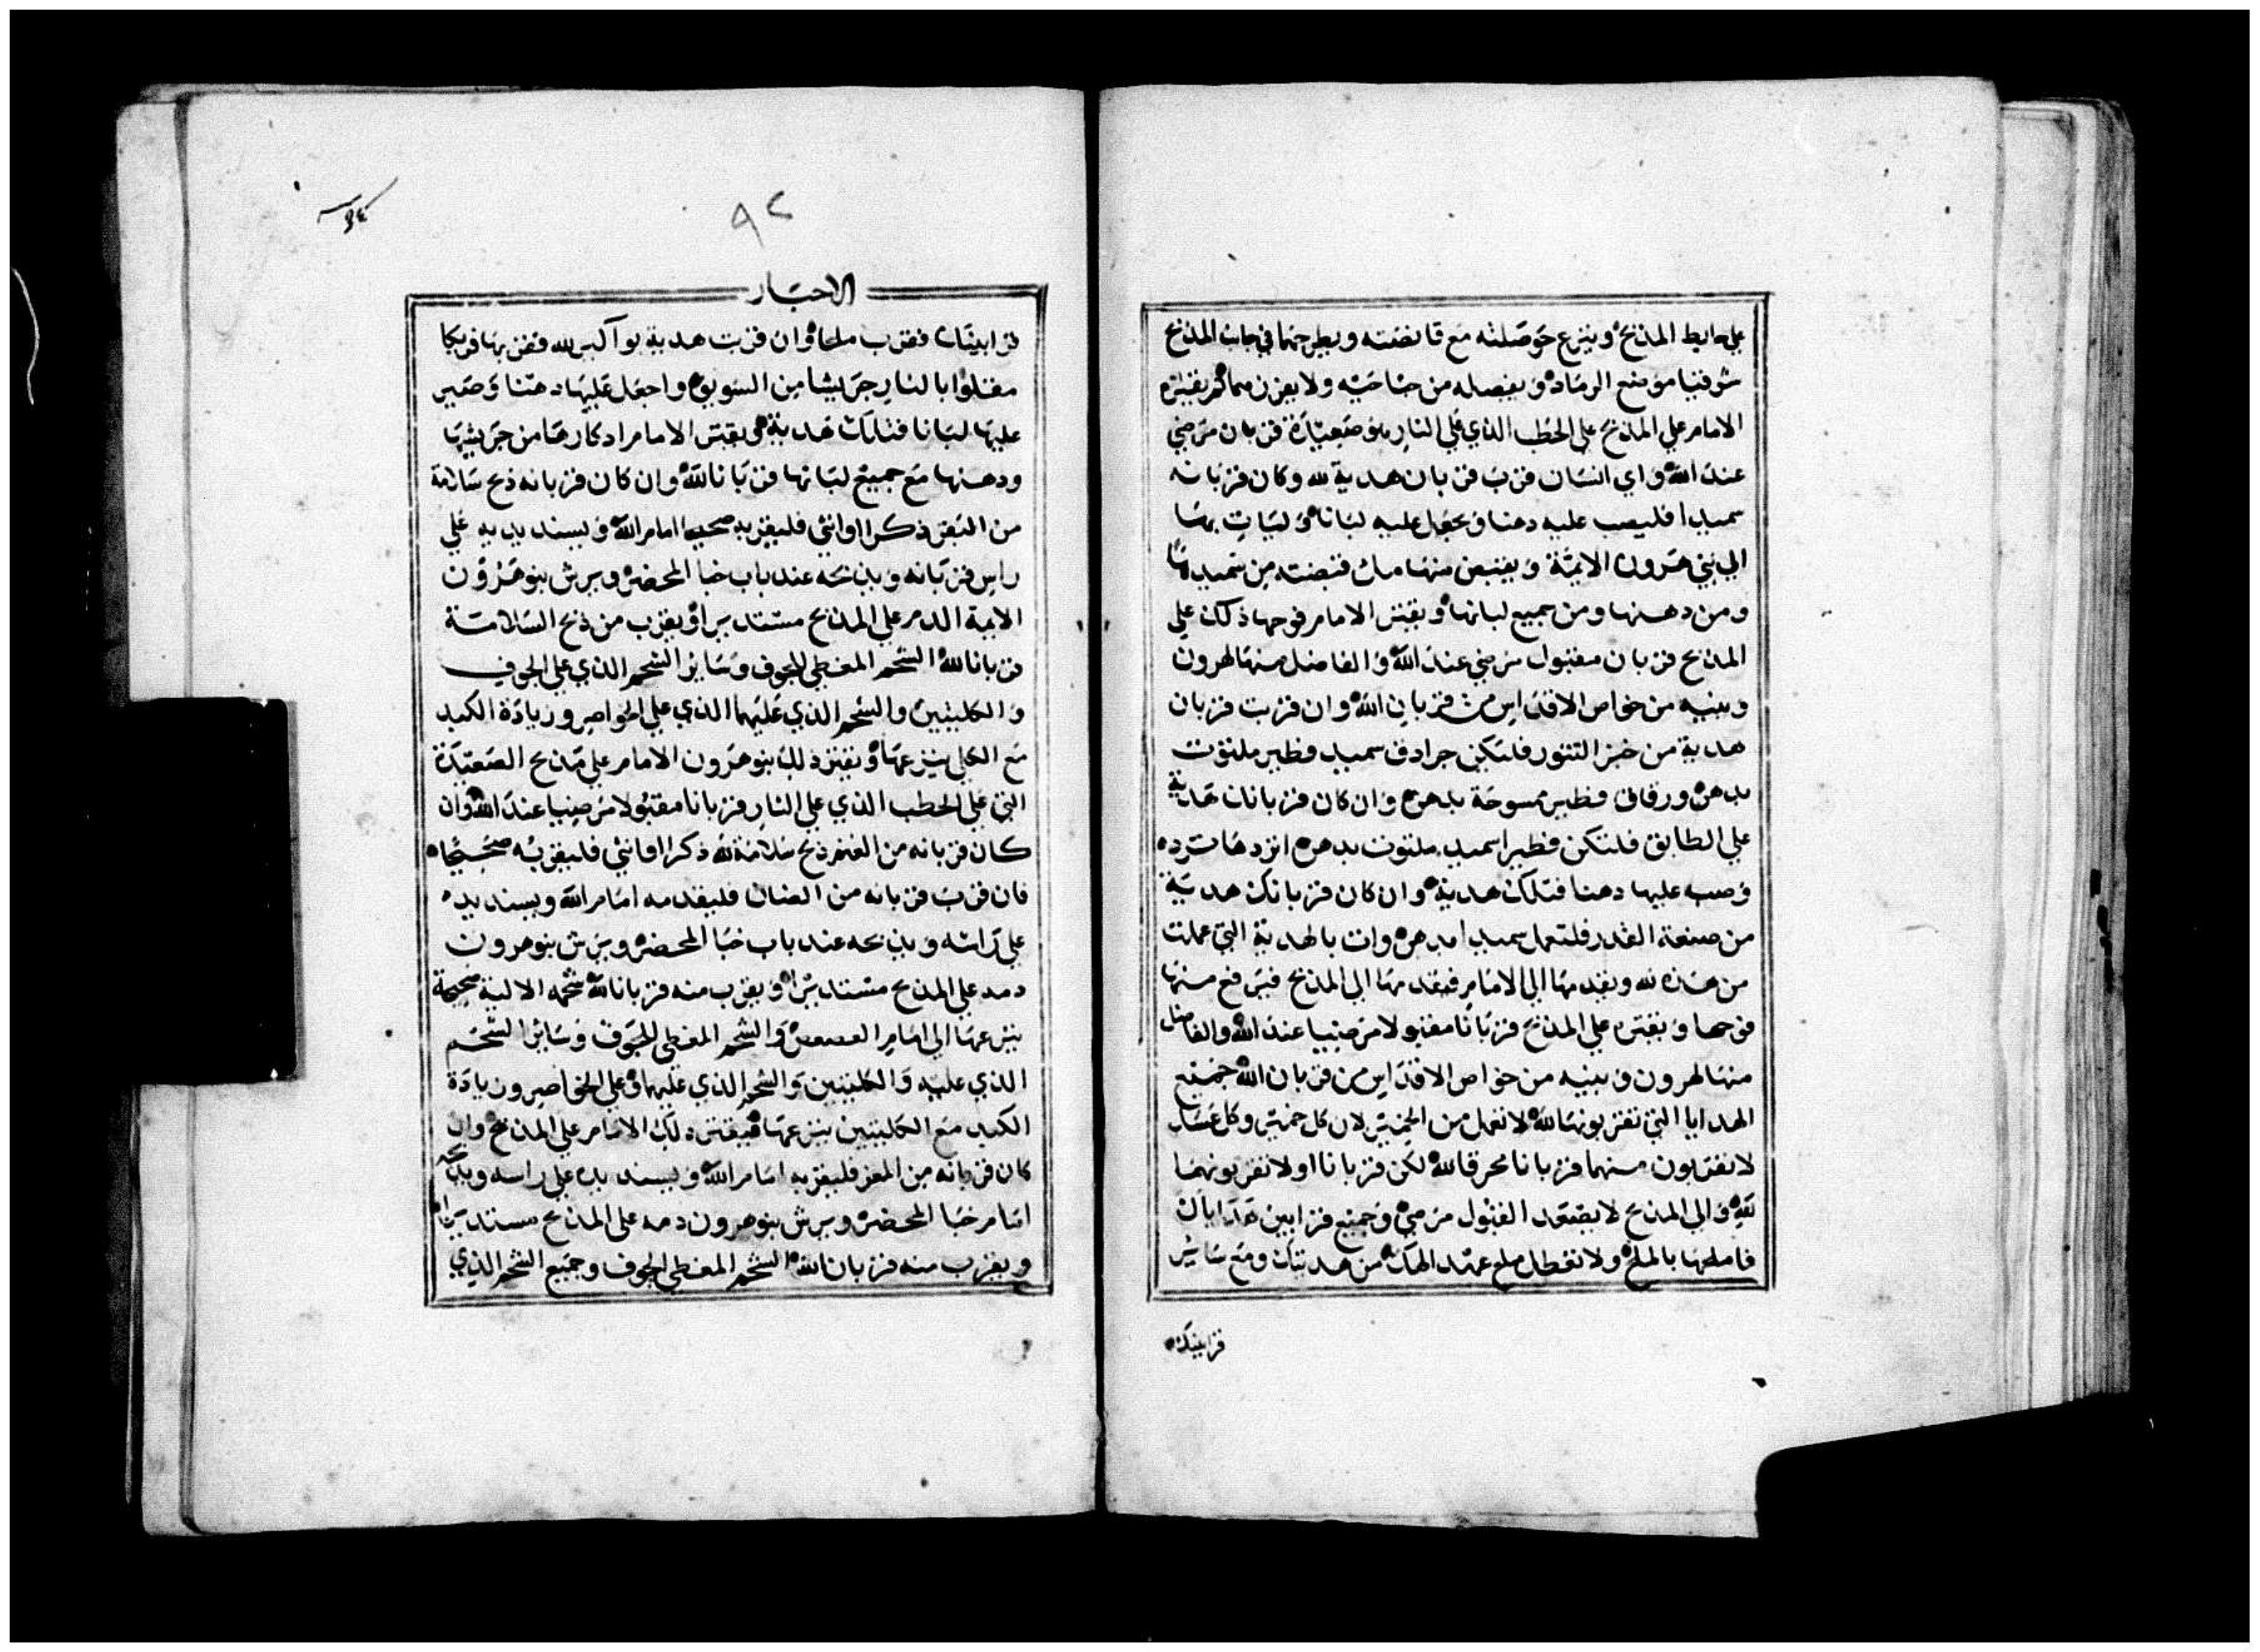 علي حايط المذبح وينزع حوصلته مع قانصته ويطرحها في جانب المذبح
شرقيا موضع الرماد ويفصله من جناحيه ولا يفرزهما ثم يقتره
الامام علي المذبح علي الحطب الذي علي النار صعيدة قربان مرضي
عند الله واي انسان قرب قربان هدية لله وكان قربانه
سميدا فليصب عليه دهنا ويجعل عليه لبانا وليات بها
الي بني هرون الايمة ويقبض منها مل قبضته من سميدها
ومن دهنها ومن جميع لبانها ويقتر الامام فوحها ذلك علي
المذبح قربان مقبول مرضي عند الله والفاضل منها لهرون
وبنيه من خواص الاقداس من قربان الله وان قربت قربان
هدية من خبز التنور فلتكن جرادق سميد فطير ملتوت
بدهن ورقاق فطير ممسوحة بدهن وان كان قربانك هدية
علي الطابق فلتكن فطيرا سميد ملتوت بدهن اثردها ثرده
وصب عليها دهنا فتلك هدية وان كان قربانك هدية
من صنعة القدر فلتعمل سميدا بدهن وات بالهدية التي عملت
من هذه لله ويقدمها الي الامام فيقدمها الي المذبح فيرفع منها
فوحها ويقتره علي المذبح قربانا مقبولا مرضيا عند الله والفاضل
منها لهرون وبنيه من خواص الاقداس من قربان الله جميع
الهدايا التي تقربونها لله لا تعمل من الخمير لان كل خمير وكل عسل
لا تقربون منهما قربانا محرقا لله لكن قربانا اولا تقربونهما
لله والي المذبح لا يصعد القبول مرضي وجميع قرابين هداياك
فاملحها بالملح ولا تعطل ملح عهد الهك من هديتك ومع ساير
قرابينك
٩٢
الاحبار
قرابينك فقرب ملحا وان قربت هدية بواكير لله فقربها فريكا
مقلوا بالنار جريشا من السويق واجعل عليها دهنا وصير
عليها لبانا فتلك هدية ويقتر الامام ادكارها من جريشها
ودهنها مع جميع لبانها قربانا لله وان كان قربانه ذبح سلامة
من البقر ذكرا او انثي فليقربه صحيحا امام الله ويسند يديه علي
راس قربانه ويذبحه عند باب خبا المحضر ويرش بنو هرون
الايمة الدم علي المذبح مستديرا ويقرب من ذبح السلامة
قربانا لله الشحم المغطي للجوف وساير الشحم الذي علي الجوف
والكليتين والشحم الذي عليهما الذي علي الخواصر وزيادة الكبد
مع الكلي ينزعها ويقتر ذلك بنو هرون الامام علي مذبح الصعيدة
التي علي الحطب الذي علي النار قربانا مقبولا مرضيا عند الله وان
كان قربانه من الغنم ذبح سلامة لله ذكرا او انثي فليقربه صحيحا
فان قرب قربانه من الضان فليقدمه امام الله ويسند يده
علي راسه ويذبحه عند باب خبا المحضر ويرش بنو هرون
دمه علي المذبح مستديرا ويقرب منه قربانا لله شحمه الالية صحيحة
ينزعها الي امام العصعص والشحم المغطي للجوف وساير الشحم
الذي عليه والكليتين والشحم الذي عليهما وعلي الخواصر وزيادة
الكبد مع الكليتين ينزعها فيقتر ذلك الامام علي المذبح وان
كان قربانه من المعز فليقربه امام الله ويسند يده علي راسه ويذبحه
امام خبا المحضر ويرش بنو هرون دمه علي المذبح مستديرا
ويقرب منه قربانا لله الشحم المغطي الجوف وجميع الشحم الذي